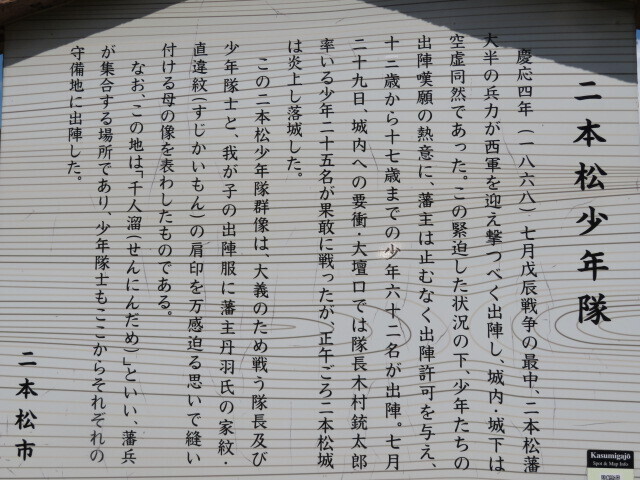 二本松少年隊
慶応四年（一八六八）七月戊辰戦争の最中、二本松藩
大半の兵力が西軍を迎え撃つべく出陣し、城内・城下は
空虚同然であった。この緊迫した状況の下、少年たちの
出陣嘆願の熱意に、藩主は止むなく出陣許可を与え、
十三歳から十七歳までの少年六十二名が出陣。七月
二十九日、城内への要衝・大壇口では隊長木村銃太郎
率いる少年二十五名が果敢に戦ったが、正午ごろ二本松城
は炎上し落城した。
この二本松少年隊群像は、大義のため戦う隊長及び
少年隊士と、我が子の出陣服に藩主丹羽氏の家紋・
直違紋(すじかいもん)の肩印を万感迫る思いで縫い
付ける母の像を表わしたものである。
なお、この地は「千人溜(せんにんだめ)」といい、藩兵
が集合する場所であり、少年隊士もここからそれぞれの
守備地に出陣した。
二本松市
Kasumigajō
Spot & Map Info